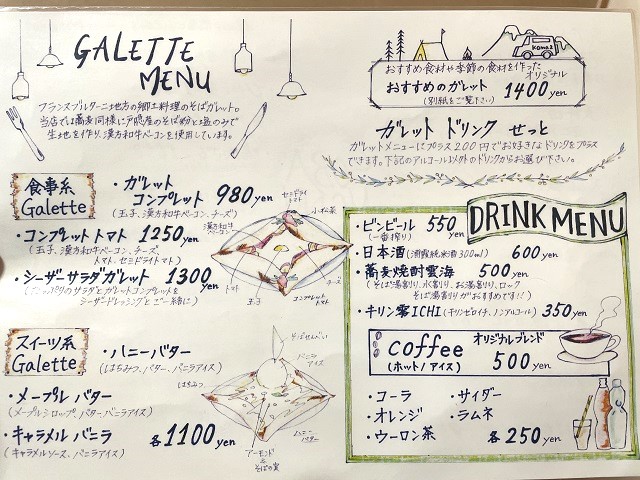 GALETTE
MENU
フランスブルターニュ地方の郷土料理のそば粉ガレット。
当店では蕎麦同様に戸隠産のそば粉と塩のみで
生地を作り、漢方和牛ベーコンを使用しています。
食事系
Galette
・ガレット
コンプレット 980yen
(玉子、漢方和牛ベーコン、チーズ)
・コンプレットトマト 1250yen
(玉子、漢方和牛ベーコン、チーズ、
トマト、セミドライトマト)
・シーザーサラダガレット 1300yen
サラダとガレットコンプレットを
シーザードレッシングとご一緒に)
セミドライ
トマト
漢方和牛
ベーコン
チーズ
トマト
玉子
コンプレットトマト
スイーツ系
Galette
・ハニーバター
(はちみつ、バター、バニラアイス)
・メープルバター
(メープルシロップ、バター、バニラアイス)
・キャラメルバニラ
(キャラメルソース、バニラアイス)
各1100yen
そばせんべい
バニラ
アイス
はちみつ
ハニー
バター
アーモンド
そばの実
KOMA2
おすすめ食材や季節の食材を作った
オリジナル
おすすめのガレット 1400yen
(別紙をご覧下さい)
ガレット ドリンク せっと
ガレットメニューにプラス200円でお好きなドリンクをプラス
できます。下記のアルコール以外のドリンクからお選び下さい。
DRINK MENU
・ビンビール 550yen
(一番搾り)
・日本酒 (300ml) 600yen
・蕎麦焼酎雲海 500yen
(そば湯割り、水割り、お湯割り、ロック
そば湯割りがおすすめです!!)
・キリン零ICHI (キリンゼロイチ、ノンアルコール) 350yen
coffee
(ホット/アイス)
オリジナルブレンド
500yen
・コーラ ・サイダー
・オレンジ ・ラムネ
・ウーロン茶 各250yen